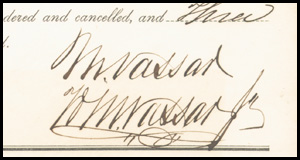 dered and cancelled, and Three
d.
M. Vassar
M. Vassar Jr